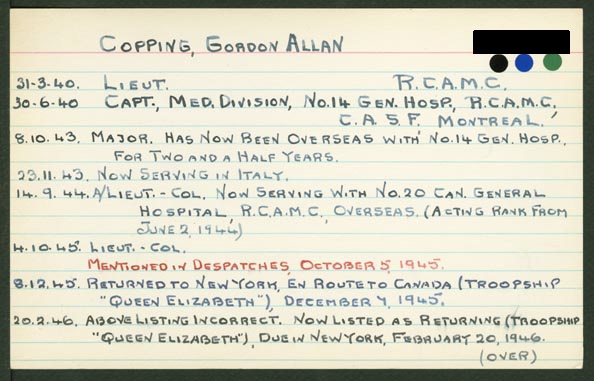 COPPING, GORDON ALLAN
31-3-40. LIEUT. R.C.A.M.C.
30-6-40 CAPT., MED. DIVISION, NO.14 GEN. HOSP., R.C.A.M.C.,
C.A.S.F. MONTREAL.
8.10.43. MAJOR. HAS NOW BEEN OVERSEAS WITH NO.14 GEN. HOSP.,
FOR TWO AND A HALF YEARS.
23.11.43. NOW SERVING IN ITALY.
14.9.44. A/LIEUT.-COL. NOW SERVING WITH NO.20 CAN. GENERAL
HOSPITAL, R.C.A.M.C., OVERSEAS. (ACTING RANK FROM
JUNE 2, 1944)
4.10.45. LIEUT.-COL.
MENTIONED IN DESPATCHES, OCTOBER 5, 1945.
8.12.45. RETURNED TO NEW YORK, EN ROUTE TO CANADA (TROOPSHIP
"QUEEN ELIZABETH"), DECEMBER 7, 1945.
20.2.46. ABOVE LISTING INCORRECT. NOW LISTED AS RETURNING (TROOPSHIP
"QUEEN ELIZABETH"), DUE IN NEW YORK, FEBRUARY 20, 1946.
(OVER)